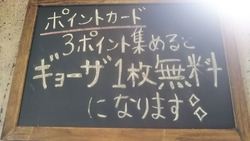 ポイントカード
3ポイント集めると
ギョーザ1枚無料
になります